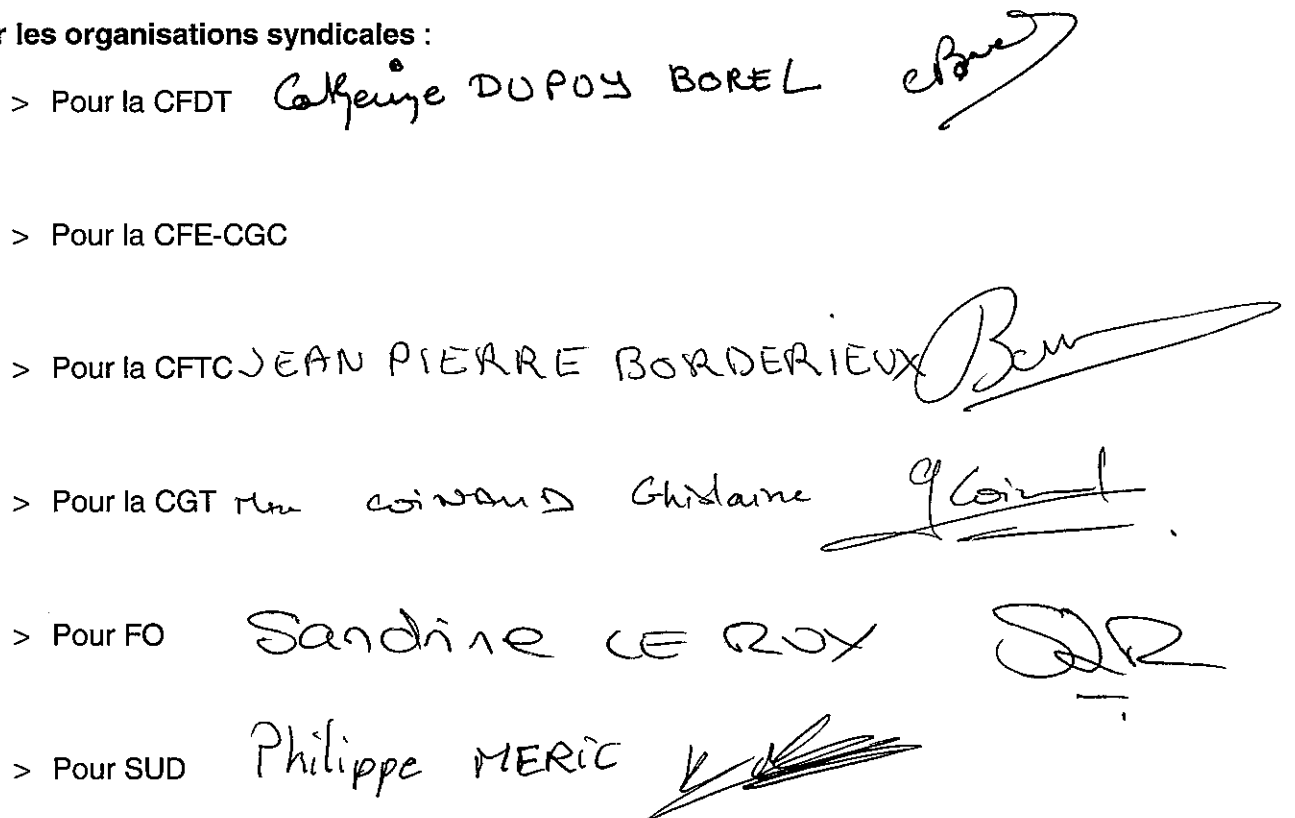 r les organisations syndicales :
> Pour la CFDT Catherine DUPUY BOREL
> Pour la CFE-CGC
> Pour la CFTC JEAN PIERRE BORDERIEUX
> Pour la CGT Mme COINAUD Ghislaine
> Pour FO Sandrine LE ROUX
> Pour SUD Philippe MERIC